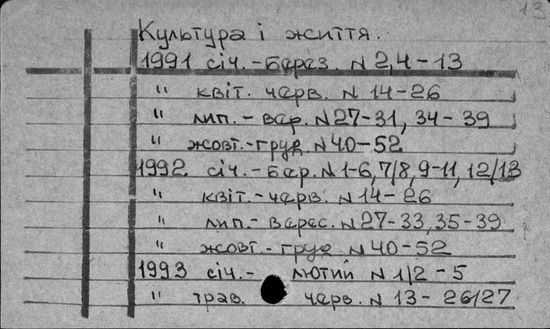 13
Культура і життя.
1991 січ.-берез. N 2,4-13
" квіт. черв. N 14-26
" лип.-вер. N 27-31, 34-39
" жовт.-груд N 40-52
1992 січ.-бер. N 1-6, 7/8, 9-11, 12/13
" квіт.-черв. N 14-26
" лип.-верес. N 27-33, 35-39
" жовт.-груд N 40-52
1993 січ.- лютий N 1/2-5
" трав. черв. N 13-26/27